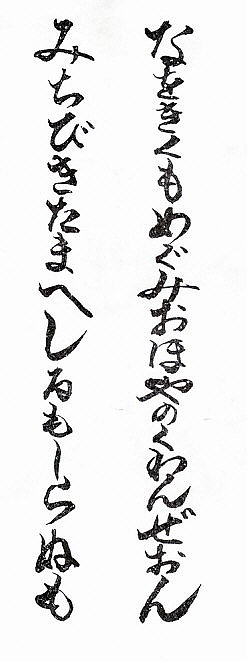 なをきくもめぐみおほやのくわんぜおん
みちびきたまへしるもしらぬも